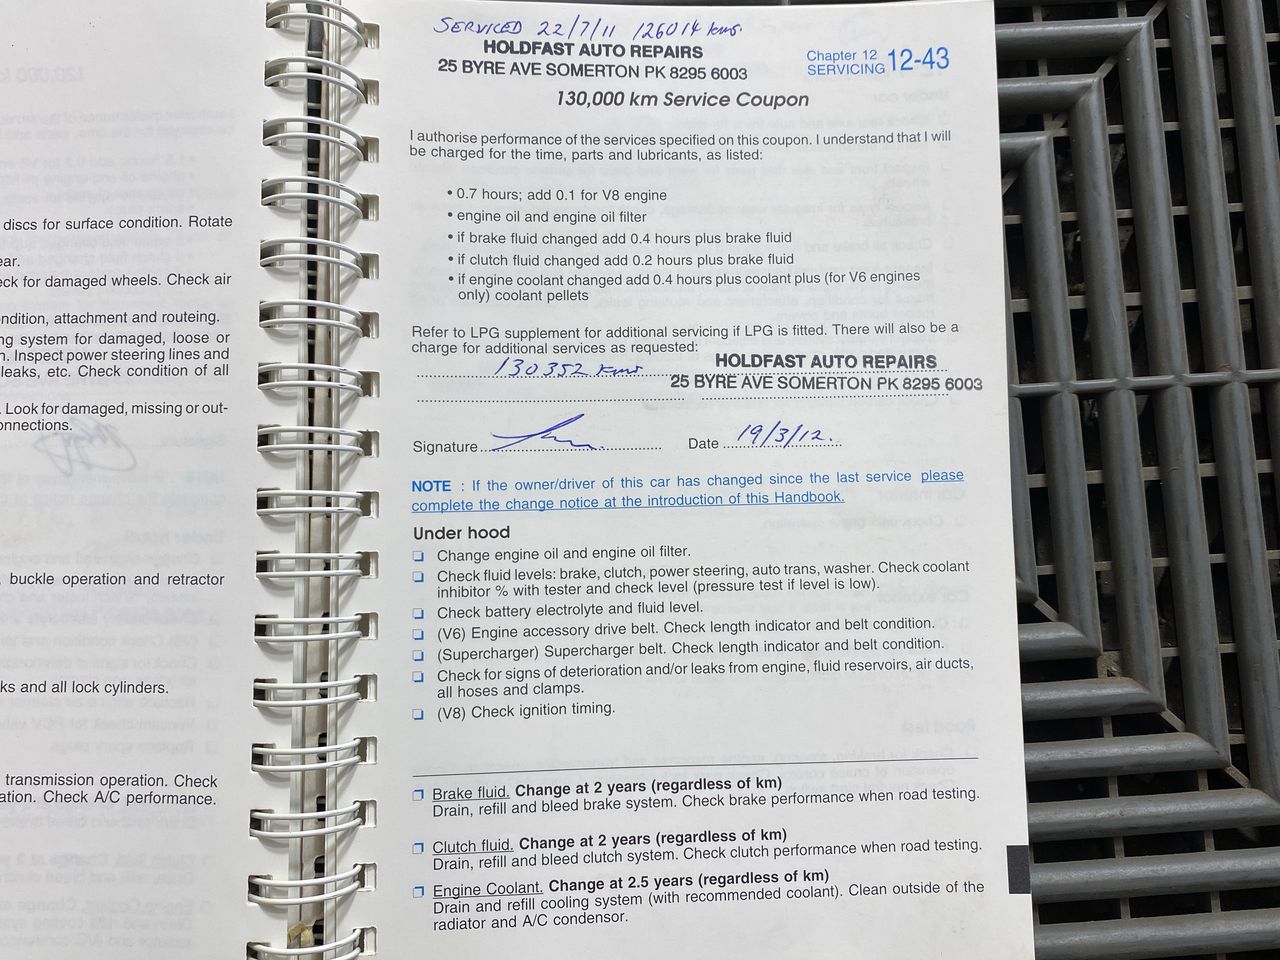 discs for surface condition. Rotate
ear.
eck for damaged wheels. Check air
ndition, attachment and routeing.
ng system for damaged, loose or
n. Inspect power steering lines and
leaks, etc. Check condition of all
. Look for damaged, missing or out-
onnections.
, buckle operation and retractor
ks and all lock cylinders.
transmission operation. Check
ation. Check A/C performance.
SERVICED 22/7/11 126014 kms.
HOLDFAST AUTO REPAIRS
25 BYRE AVE SOMERTON PK 8295 6003
Chapter 12
SERVICING 12-43
130,000 km Service Coupon
I authorise performance of the services specified on this coupon. I understand that I will
be charged for the time, parts and lubricants, as listed:
• 0.7 hours; add 0.1 for V8 engine
• engine oil and engine oil filter
• if brake fluid changed add 0.4 hours plus brake fluid
• if clutch fluid changed add 0.2 hours plus brake fluid
• if engine coolant changed add 0.4 hours plus coolant plus (for V6 engines
only) coolant pellets
Refer to LPG supplement for additional servicing if LPG is fitted. There will also be a
charge for additional services as requested:
130352 kms
HOLDFAST AUTO REPAIRS
25 BYRE AVE SOMERTON PK 8295 6003
Signature Date 19/3/12.
NOTE : If the owner/driver of this car has changed since the last service please
complete the change notice at the introduction of this Handbook.
Under hood
❏ Change engine oil and engine oil filter.
❏ Check fluid levels: brake, clutch, power steering, auto trans, washer. Check coolant
inhibitor % with tester and check level (pressure test if level is low).
❏ Check battery electrolyte and fluid level.
❏ (V6) Engine accessory drive belt. Check length indicator and belt condition.
❏ (Supercharger) Supercharger belt. Check length indicator and belt condition.
❏ Check for signs of deterioration and/or leaks from engine, fluid reservoirs, air ducts,
all hoses and clamps.
❏ (V8) Check ignition timing.
❏ Brake fluid. Change at 2 years (regardless of km)
Drain, refill and bleed brake system. Check brake performance when road testing.
❏ Clutch fluid. Change at 2 years (regardless of km)
Drain, refill and bleed clutch system. Check clutch performance when road testing.
❏ Engine Coolant. Change at 2.5 years (regardless of km)
Drain and refill cooling system (with recommended coolant). Clean outside of the
radiator and A/C condensor.